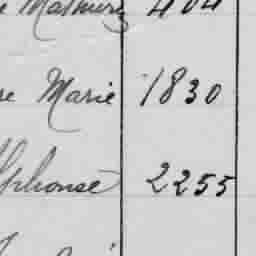 Mathurin 404
re Marie 1830
Alphonse 2255